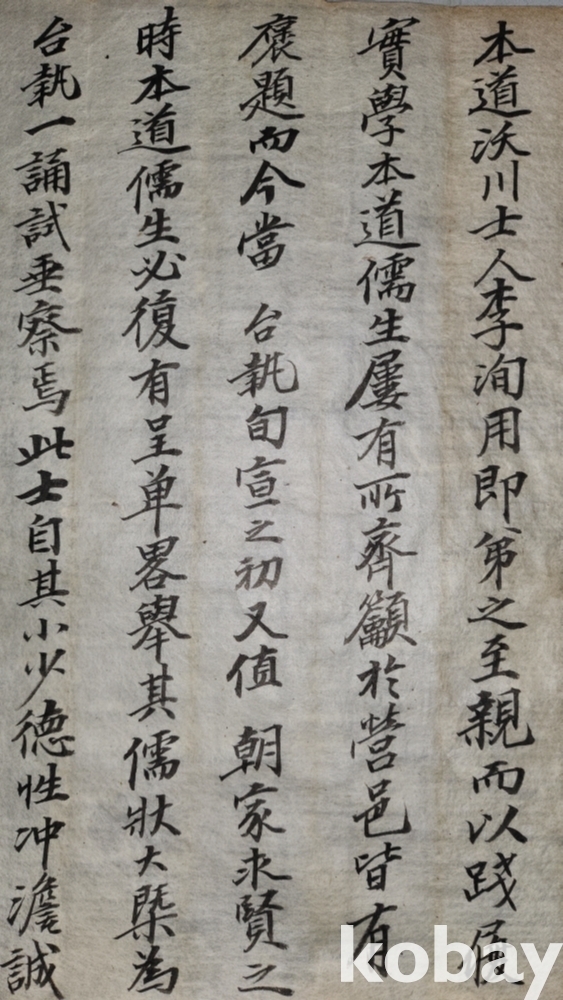 本道沃川士人李洵用即第之至親而以踐
實學本道儒生屢有所齊籲於營邑皆有
褒題而今當 台執旬宣之初又值 朝家求賢之
時本道儒生必復有呈单畧舉其儒狀大槩為
台執一誦試垂察焉此士自其小少德性冲澹誠
kobay